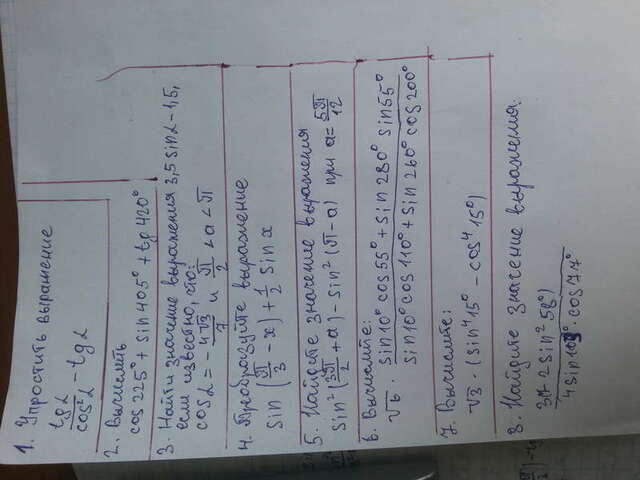 1. Упростить выражение
tg α / cos² α - tg α
2. Вычислить
cos 225° + sin 405° + tg 420°
3. Найти значение выражения 3,5 sin α - 1,5,
если известно, что:
cos α = - 4√3 / 7 и π/2 < α < π
4. Преобразуйте выражение
sin (π/3 - x) + 1/2 sin x
5. Найдите значение выражения
sin² (3π/2 + a) - sin² (π - a) при a = 5π/12
6. Вычислите:
√6 · (sin 10° cos 55° + sin 280° sin 55°) / (sin 10° cos 110° + sin 260° cos 200°)
7. Вычислите:
√3 · (sin⁴ 15° - cos⁴ 15°)
8. Найдите значение выражения.
2 sin² 58°)
4 sin 103° · cos 77°